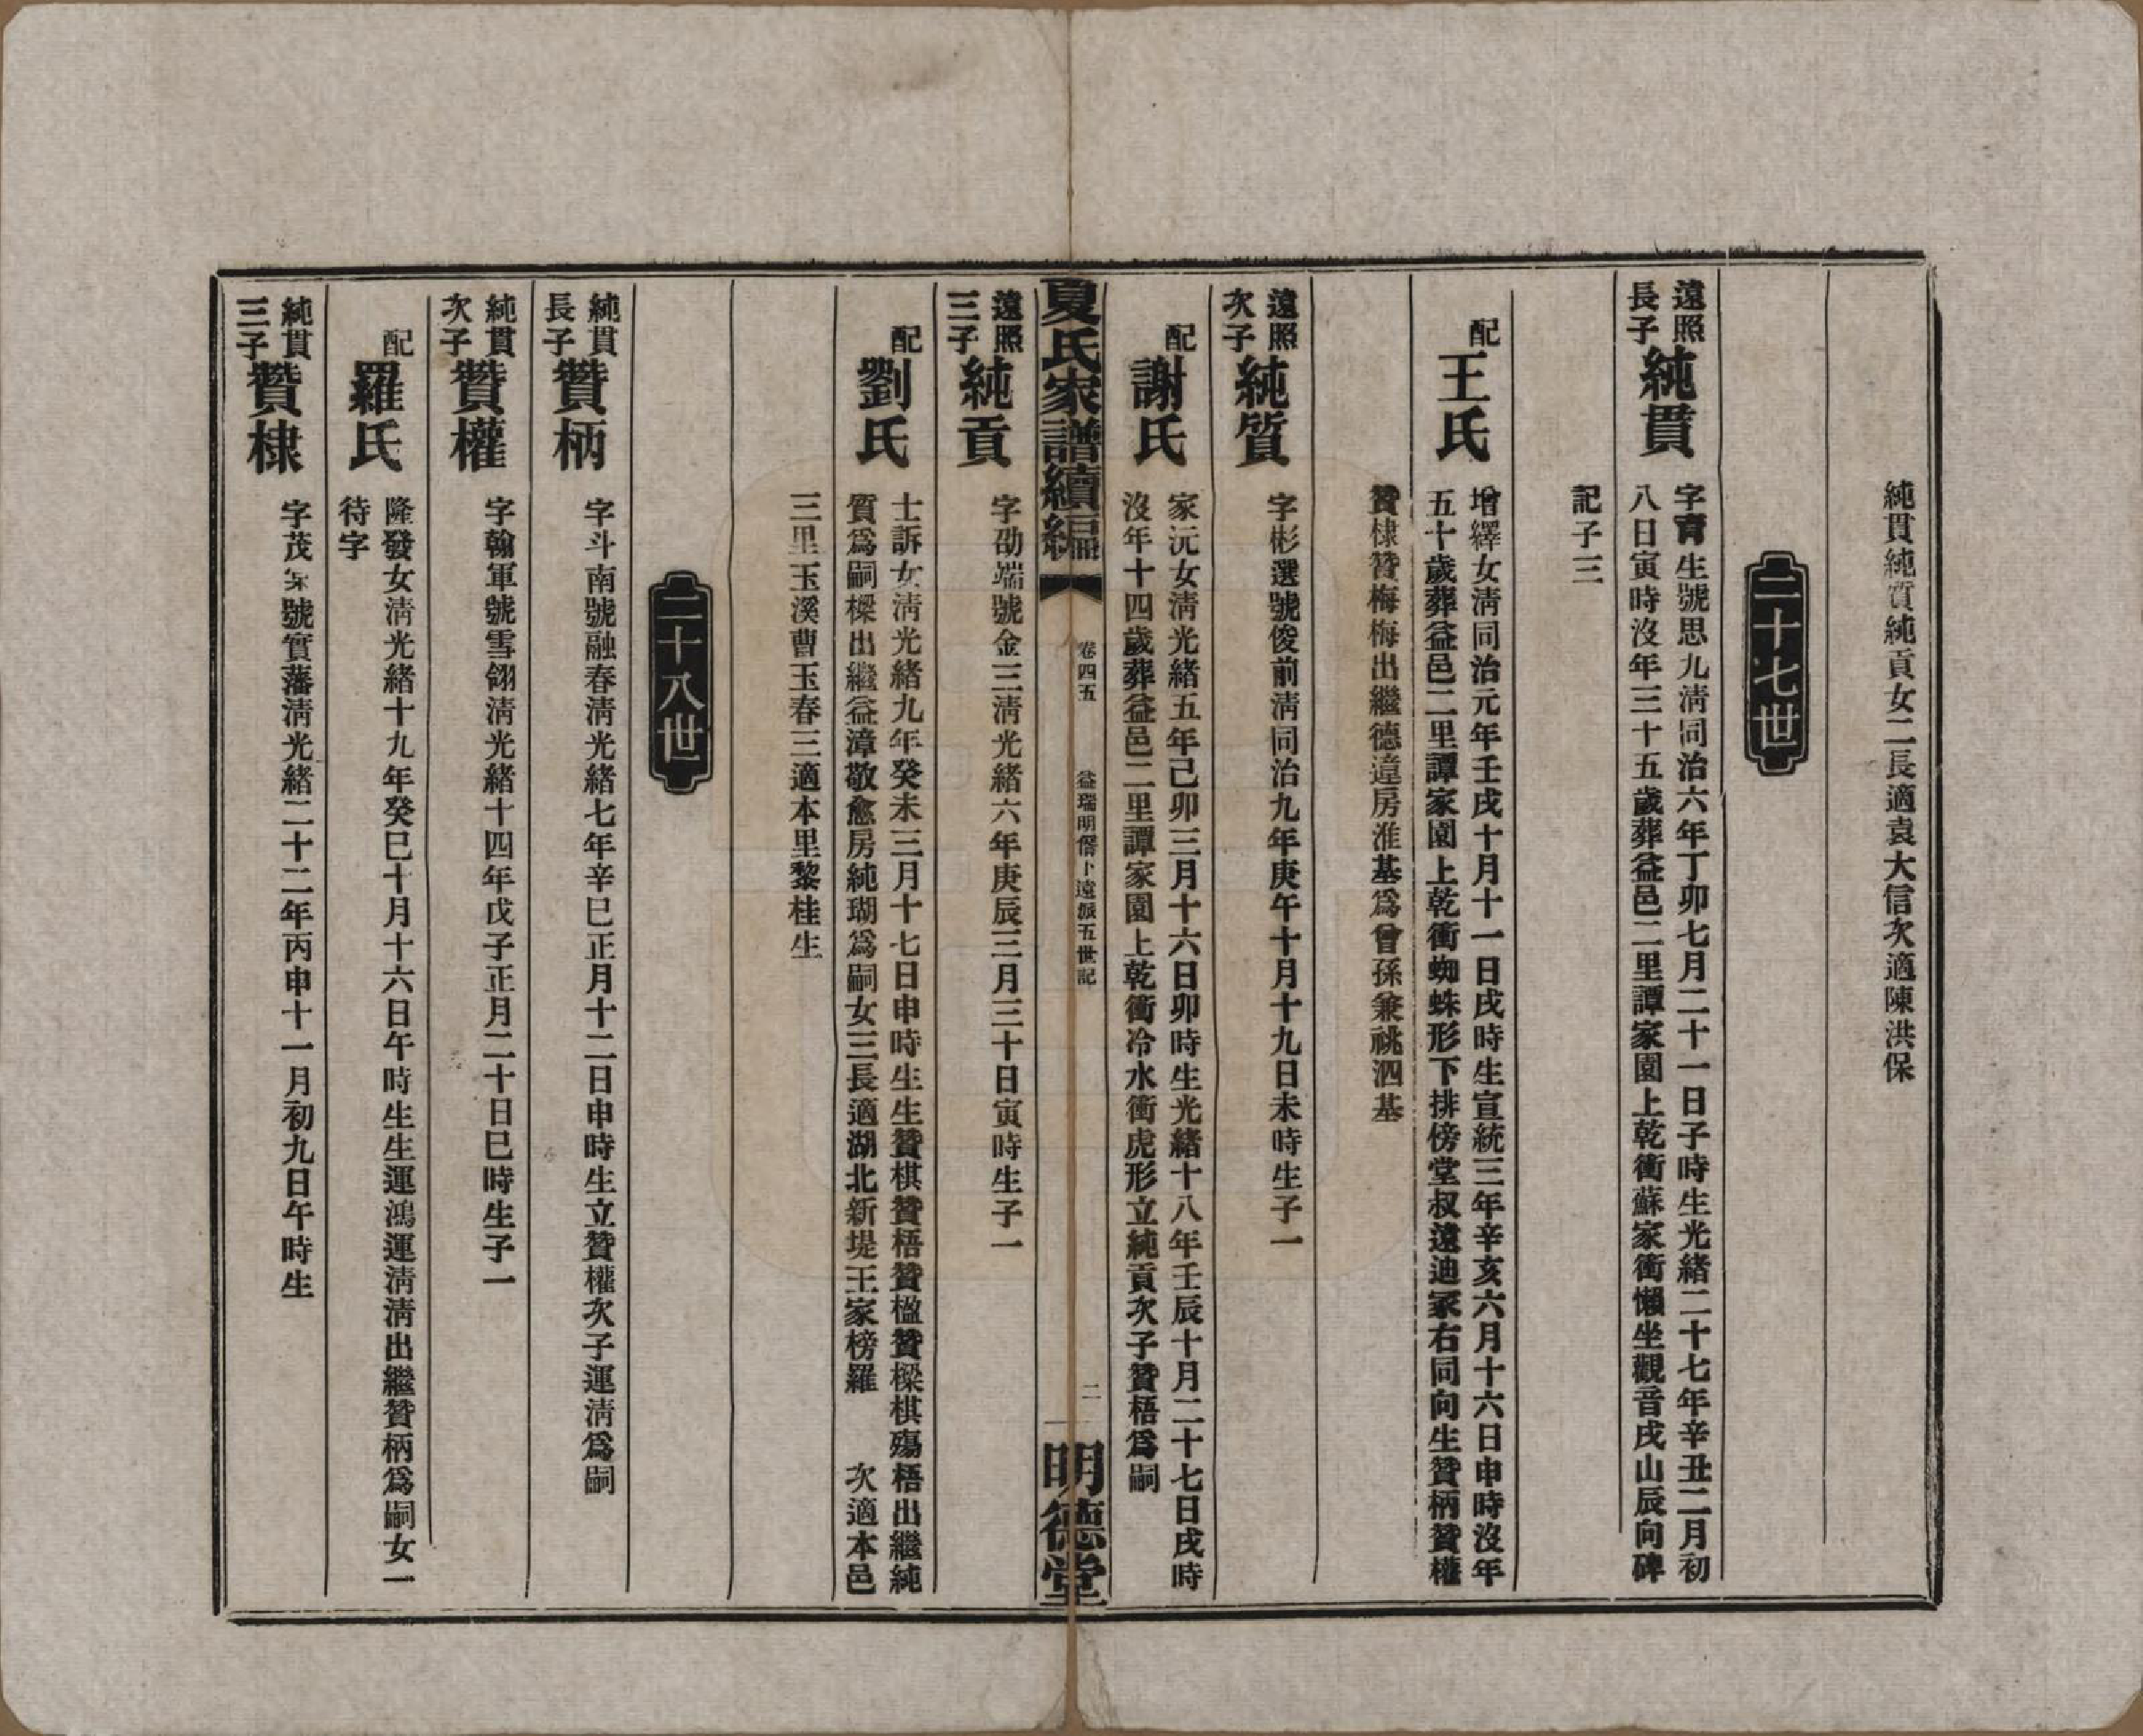 純貫純質純貢女二長適袁大信次適陳洪保
二十七世
遠照
長子
純貫
字育生號思九淸同治六年丁卯七月二十一日子時生光緒二十七年辛丑二月初
八日寅時沒年三十五歲葬益邑二里譚家園上乾衝蘇家衝懶坐觀音戌山辰向碑
記子三
配
王氏
增繹女淸同治元年壬戌十月十一日戌時生宣統三年辛亥六月十六日申時沒年
五十歲葬益邑二里譚家園上乾衝蜘蛛形下排傍堂叔遠迪冢右同向生贊柄贊權
贊棣贊梅梅出繼德違房淮基爲曾孫兼祧泗基
遠照
次子
純質
字彬選號俊前淸同治九年庚午十月十九日未時生子一
配
謝氏
家沅女淸光緒五年己卯三月十六日卯時生光緒十八年壬辰十月二十七日戌時
沒年十四歲葬益邑二里譚家園上乾衝冷水衝虎形立純貢次子贊梧爲嗣
夏氏家譜續編
卷四五
益瑞明僭卜遠派五世記
二
明德堂
遠照
三子
純貢
字劭端號金三淸光緒六年庚辰三月三十日寅時生子一
配
劉氏
士訴女淸光緒九年癸未三月十七日申時生生贊棋贊梧贊楹贊樑棋殤梧出繼純
質爲嗣樑出繼益漳敬愈房純瑚爲嗣女三長適湖北新堤王家榜羅 次適本邑
三里玉溪曹玉春三適本里黎桂生
二十八世
純貫
長子
贊柄
字斗南號融春淸光緒七年辛巳正月十二日申時生立贊權次子運淸爲嗣
純貫
次子
贊權
字翰軍號雪翎淸光緒十四年戊子正月二十日巳時生子一
配
羅氏
隆發女淸光緒十九年癸巳十月十六日午時生生運鴻運淸淸出繼贊柄爲嗣女一
待字
純貫
三子
贊棣
字茂號實藩淸光緒二十二年丙申十一月初九日午時生